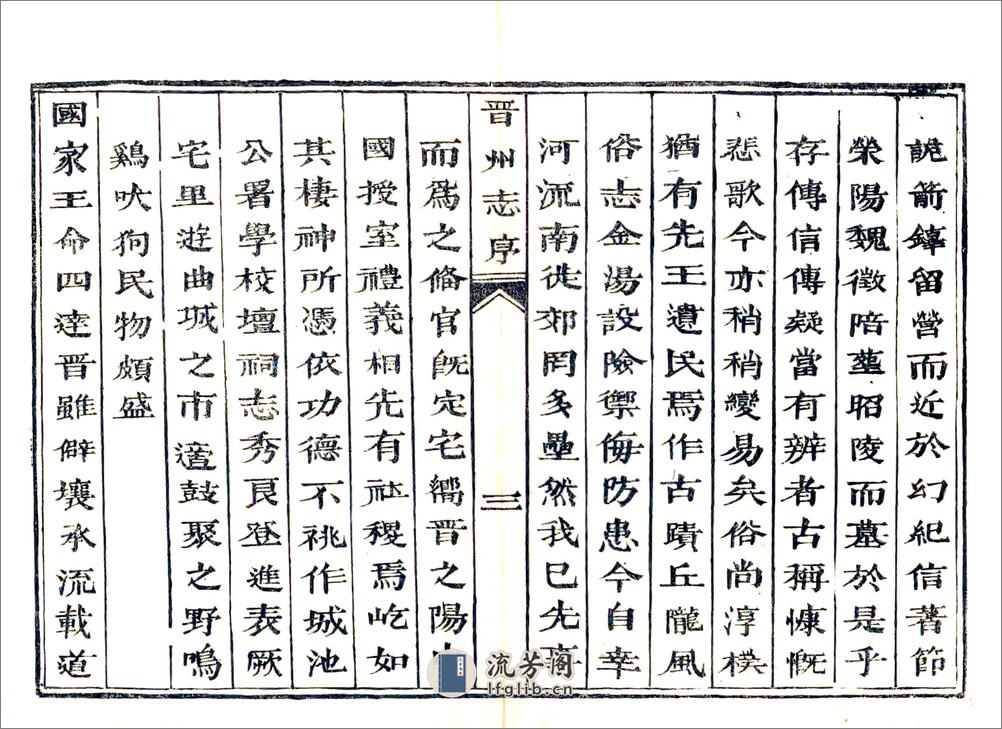 詭箭鏲留營而近於幻紀信著節
榮陽魏徵陪塟昭陵而墓於是乎
存傳信傳疑當有辨者古稱慷慨
悲歌今亦稍稍變易矣俗尚淳樸
猶有先王遺民焉作古蹟丘隴風
俗志金湯設險禦侮防患今自幸
河流南徙郊罔多壘然我已先事
晋州志序
三
而爲之俻官旣定宅嚮晋之陽
國授室禮義相先有社稷焉屹如
其棲神所憑依功德不祧作城池
公署學校壇祠志秀良登進表厥
宅里遊曲城之市適鼓聚之野鳴
鷄吠狗民物頗盛
國家王命四達晋雖僻壤承流載道
流芳阁
lfglib.cn